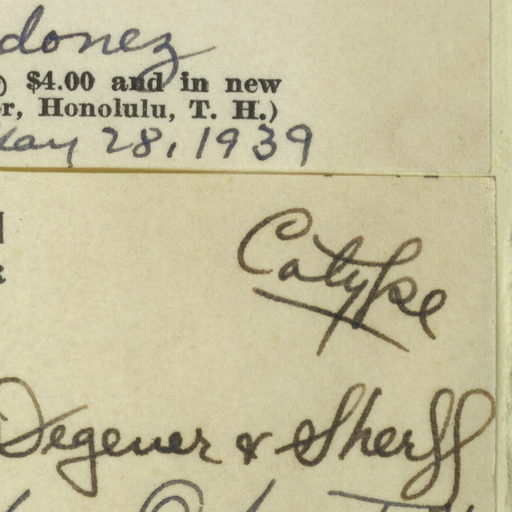 donez
$4.00 and in new
r, Honolulu, T. H.)
May 28, 1939
Cotype
Degener & Sherff